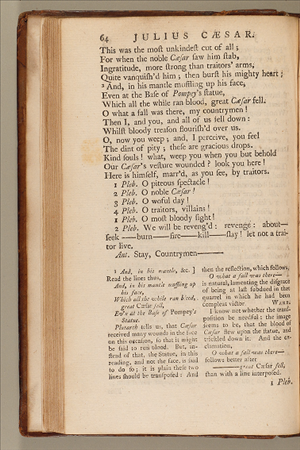 64 JULIUS CÆSAR.
This was the most unkindest cut of all;
For when the noble Cæsar saw him stab,
Ingratitude, more strong than traitors' arms,
Quite vanquish'd him; then burst his mighty heart;
² And, in his mantle muffling up his face,
Even at the Base of Pompey's statue,
Which all the while ran blood, great Cæsar fell.
O what a fall was there, my countrymen!
Then I, and you, and all of us fell down:
Whilst bloody treason flourish'd over us.
O, now you weep; and, I perceive, you feel
The dint of pity; these are gracious drops.
Kind souls! what, weep you when you but behold
Our Cæsar's vesture wounded? look you here!
Here is himself, marr'd, as you see, by traitors.
1 Pleb. O piteous spectacle!
2 Pleb. O noble Cæsar!
3 Pleb. O woful day!
4 Pleb. O traitors, villains!
1 Pleb. O most bloody sight!
2 Pleb. We will be reveng'd: revenge: about—
seek——burn——fire——kill——slay! let not a trai-
tor live.
Ant. Stay, Countrymen——
² And, in his mantle, &c.]
Read the lines thus,
And, in his mantle muffling up
his face,
Which all the while ran blood,
great Cæsar fell,
Ev'n at the Base of Pompey's
Statue.
Plutarch tells us, that Cæsar
received many wounds in the face
on this occasion, so that it might
be said to run blood. But, in-
stead of that, the Statue, in this
reading, and not the face, is said
to do so; it is plain these two
lines should be transposed: And
then the reflection, which follows,
O what a fall was there—
is natural, lamenting the disgrace
of being at last subdued in that
quarrel in which he had been
compleat victor. WARB.
I know not whether the trans-
position be needful: the image
seems to be, that the blood of
Cæsar flew upon the statue, and
trickled down it. And the ex-
clamation,
O what a fall was there—
follows better after
——great Cæsar fell,
than with a line interposed.
1 Pleb.